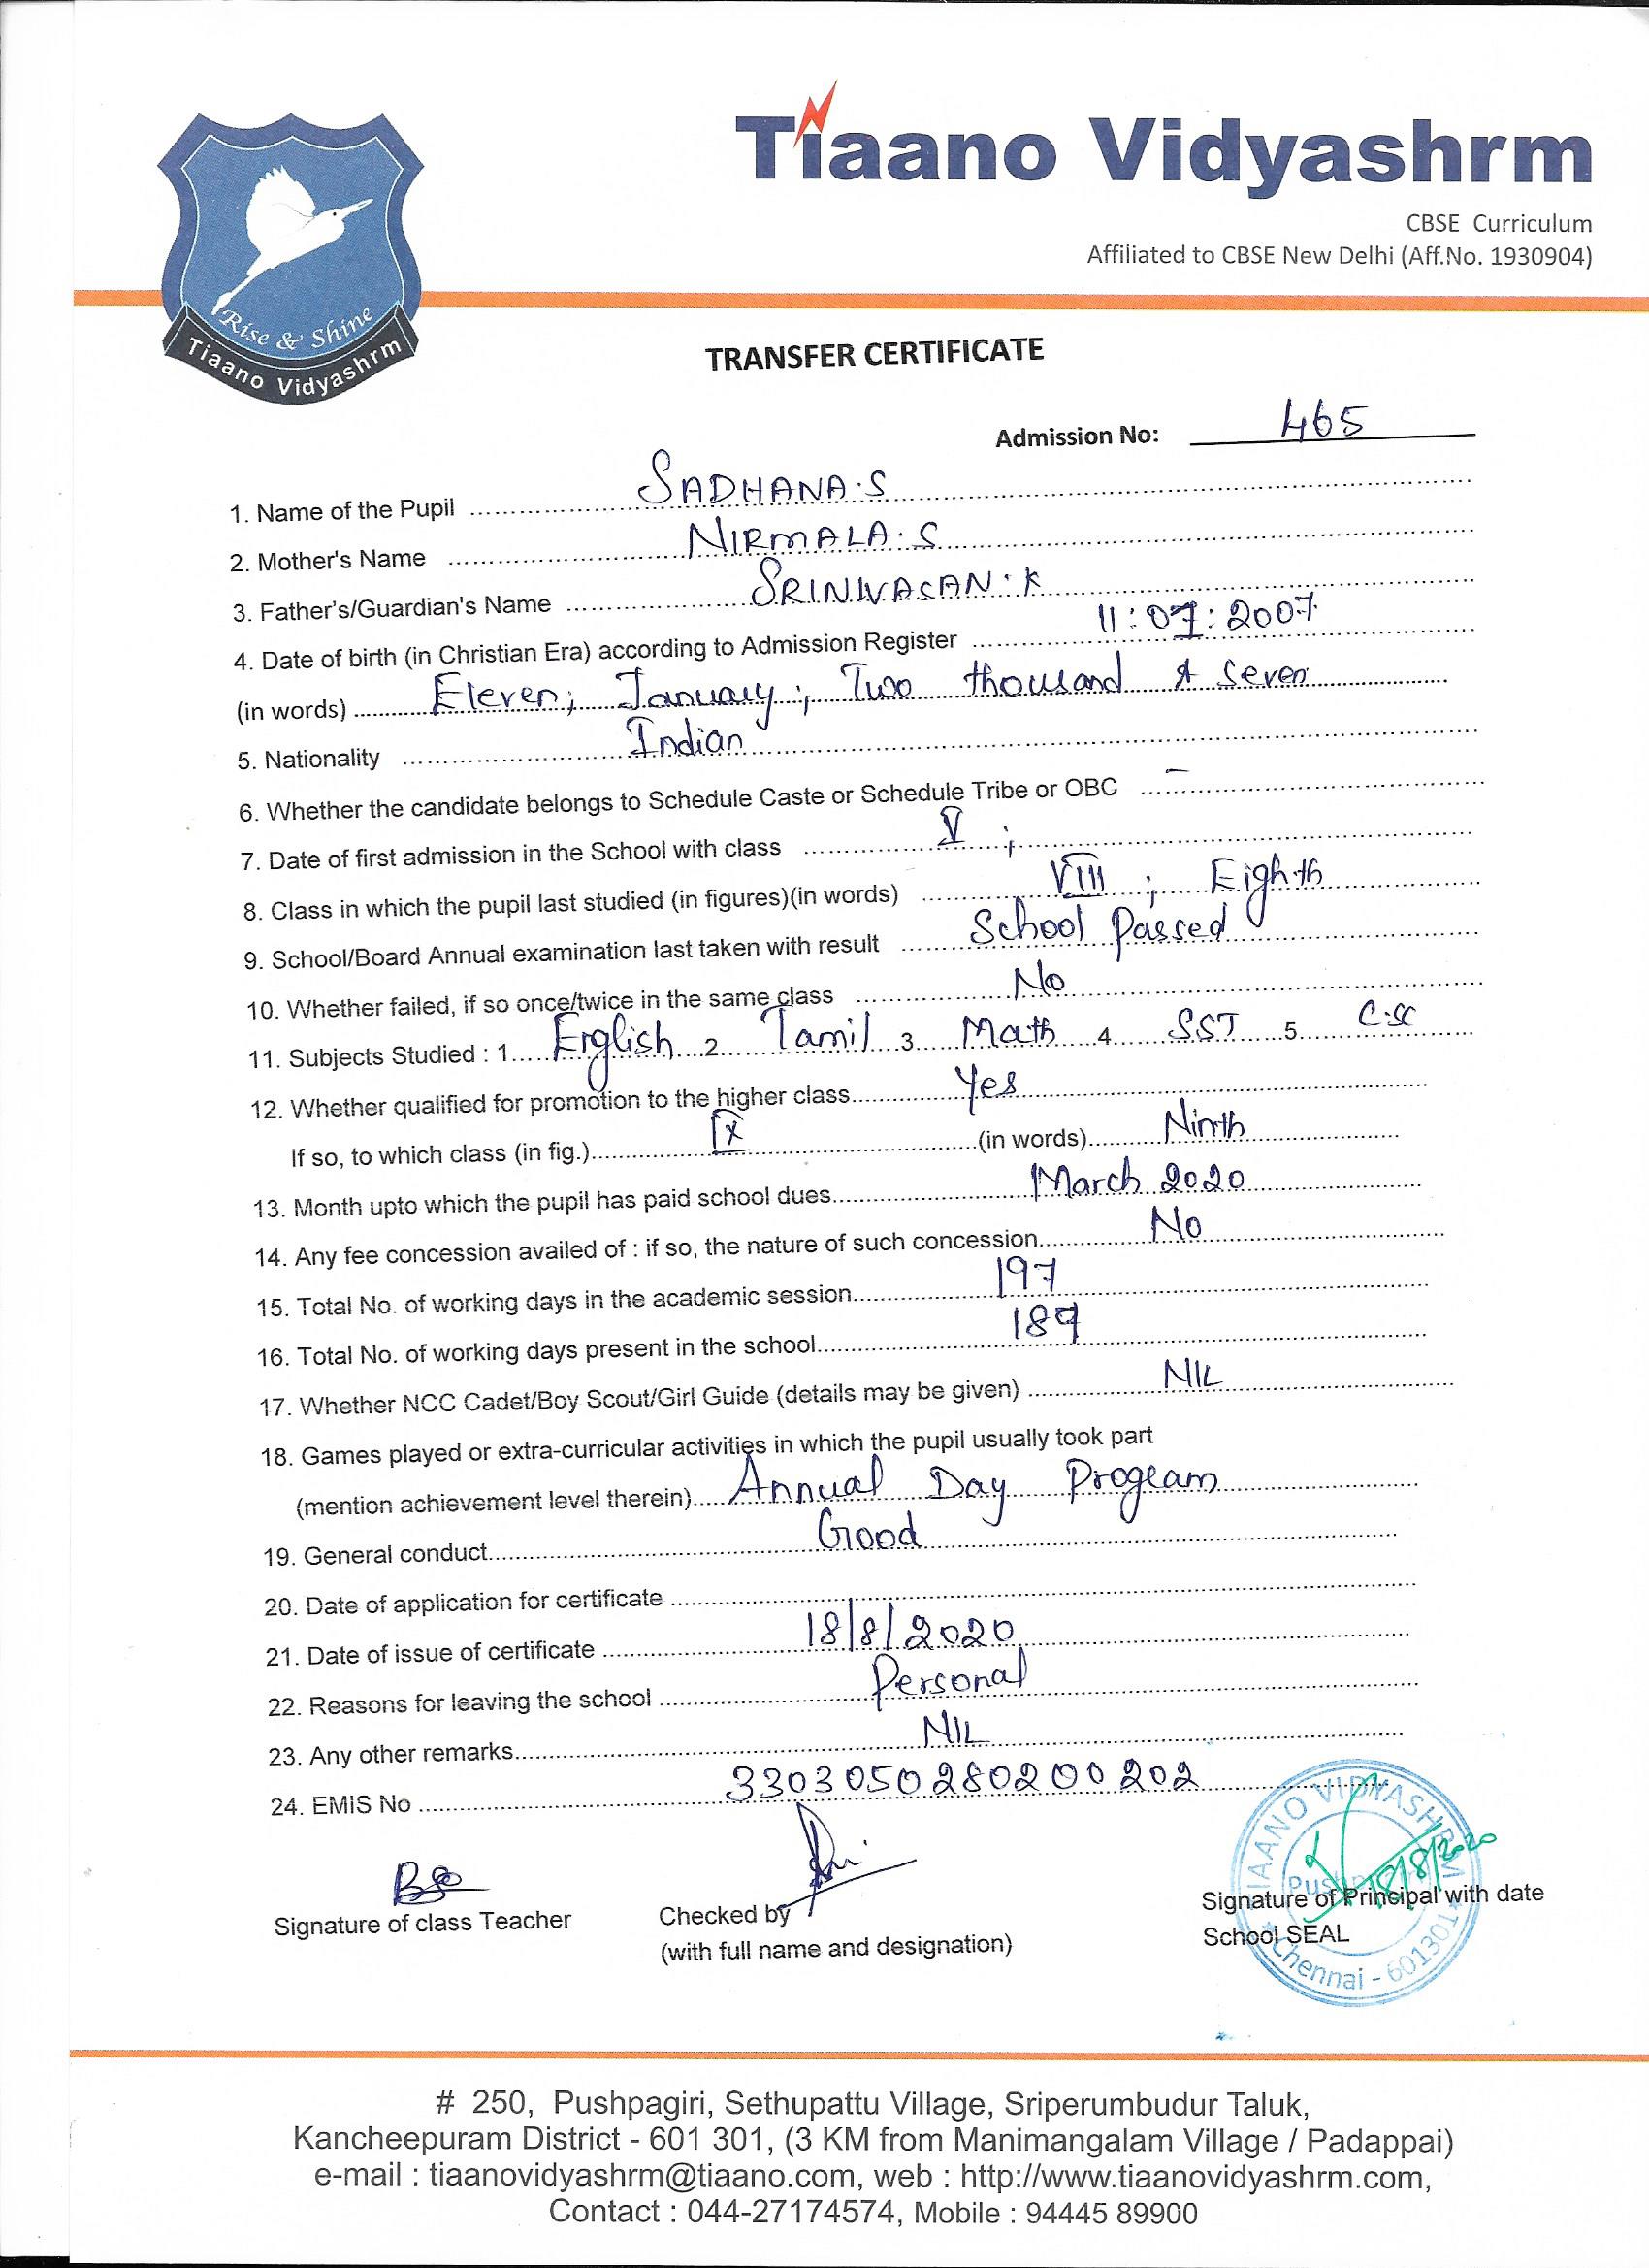 Tiaano Vidyashrm
CBSE Curriculum
Affiliated to CBSE New Delhi (Aff.No. 1930904)
Rise & Shine
Tiaano Vidyashrm
TRANSFER CERTIFICATE
Admission No: 465
1. Name of the Pupil SADHANA.S
2. Mother's Name NIRMALA.S
3. Father's/Guardian's Name SRINIVASAN.K
4. Date of birth (in Christian Era) according to Admission Register 11:07:2007
(in words) Eleven; January; Two thousand & Seven
5. Nationality Indian
6. Whether the candidate belongs to Schedule Caste or Schedule Tribe or OBC –
7. Date of first admission in the School with class V ;
8. Class in which the pupil last studied (in figures)(in words) VIII ; Eighth
9. School/Board Annual examination last taken with result School Passed
10. Whether failed, if so once/twice in the same class No
11. Subjects Studied : 1. English 2. Tamil 3. Math 4. SST 5. C.SC
12. Whether qualified for promotion to the higher class Yes
If so, to which class (in fig.) IX (in words) Ninth
13. Month upto which the pupil has paid school dues March 2020
14. Any fee concession availed of : if so, the nature of such concession No
15. Total No. of working days in the academic session 197
16. Total No. of working days present in the school
17. Whether NCC Cadet/Boy Scout/Girl Guide (details may be given) NIL
18. Games played or extra-curricular activities in which the pupil usually took part
(mention achievement level therein) Annual Day Program
19. General conduct Good
20. Date of application for certificate
21. Date of issue of certificate 18/8/2020
22. Reasons for leaving the school Personal
23. Any other remarks NIL
24. EMIS No 3303050280200202
TIAANO VIDYASHRM
18/8/2020
Signature of class Teacher
Checked by
(with full name and designation)
Signature of Principal with date
School SEAL
Chennai - 601301
# 250, Pushpagiri, Sethupattu Village, Sriperumbudur Taluk,
Kancheepuram District - 601 301, (3 KM from Manimangalam Village / Padappai)
e-mail : tiaanovidyashrm@tiaano.com, web : http://www.tiaanovidyashrm.com,
Contact : 044-27174574, Mobile : 94445 89900